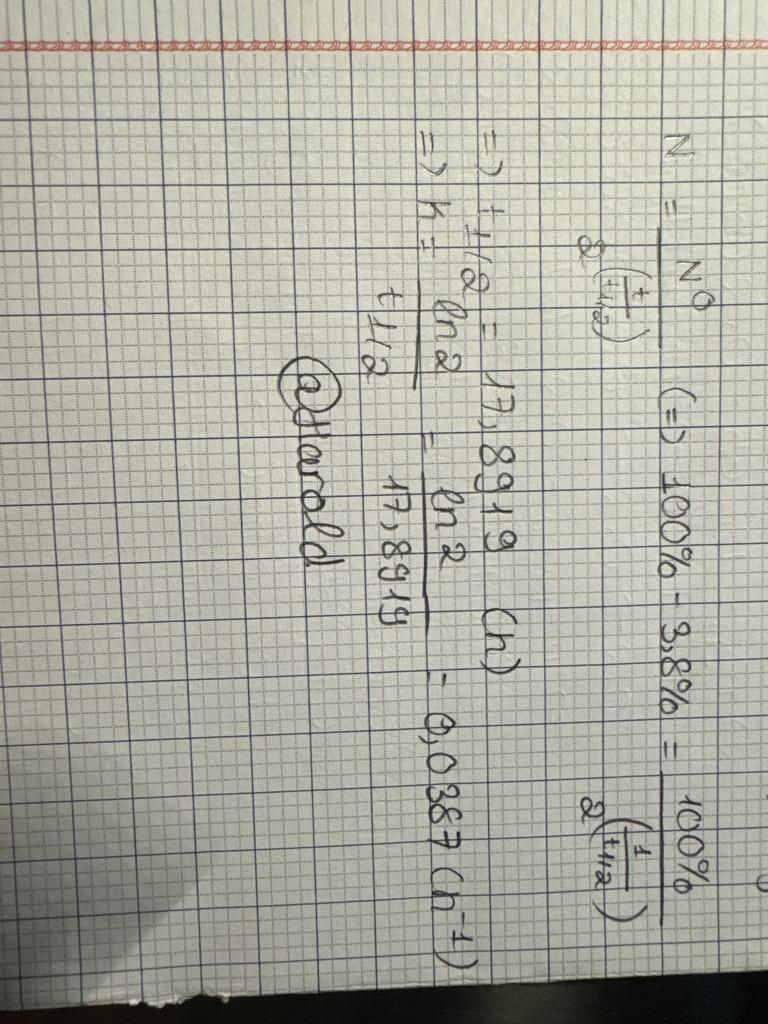 N = N0 / 2^(t/t1/2) (=) 100% - 3,8% = 100% / 2^(1/t1/2)
=) t1/2 = 17,8919 (h)
=) k = ln2 / t1/2 = ln2 / 17,8919 = 0,0387 (h^-1)
@Harold